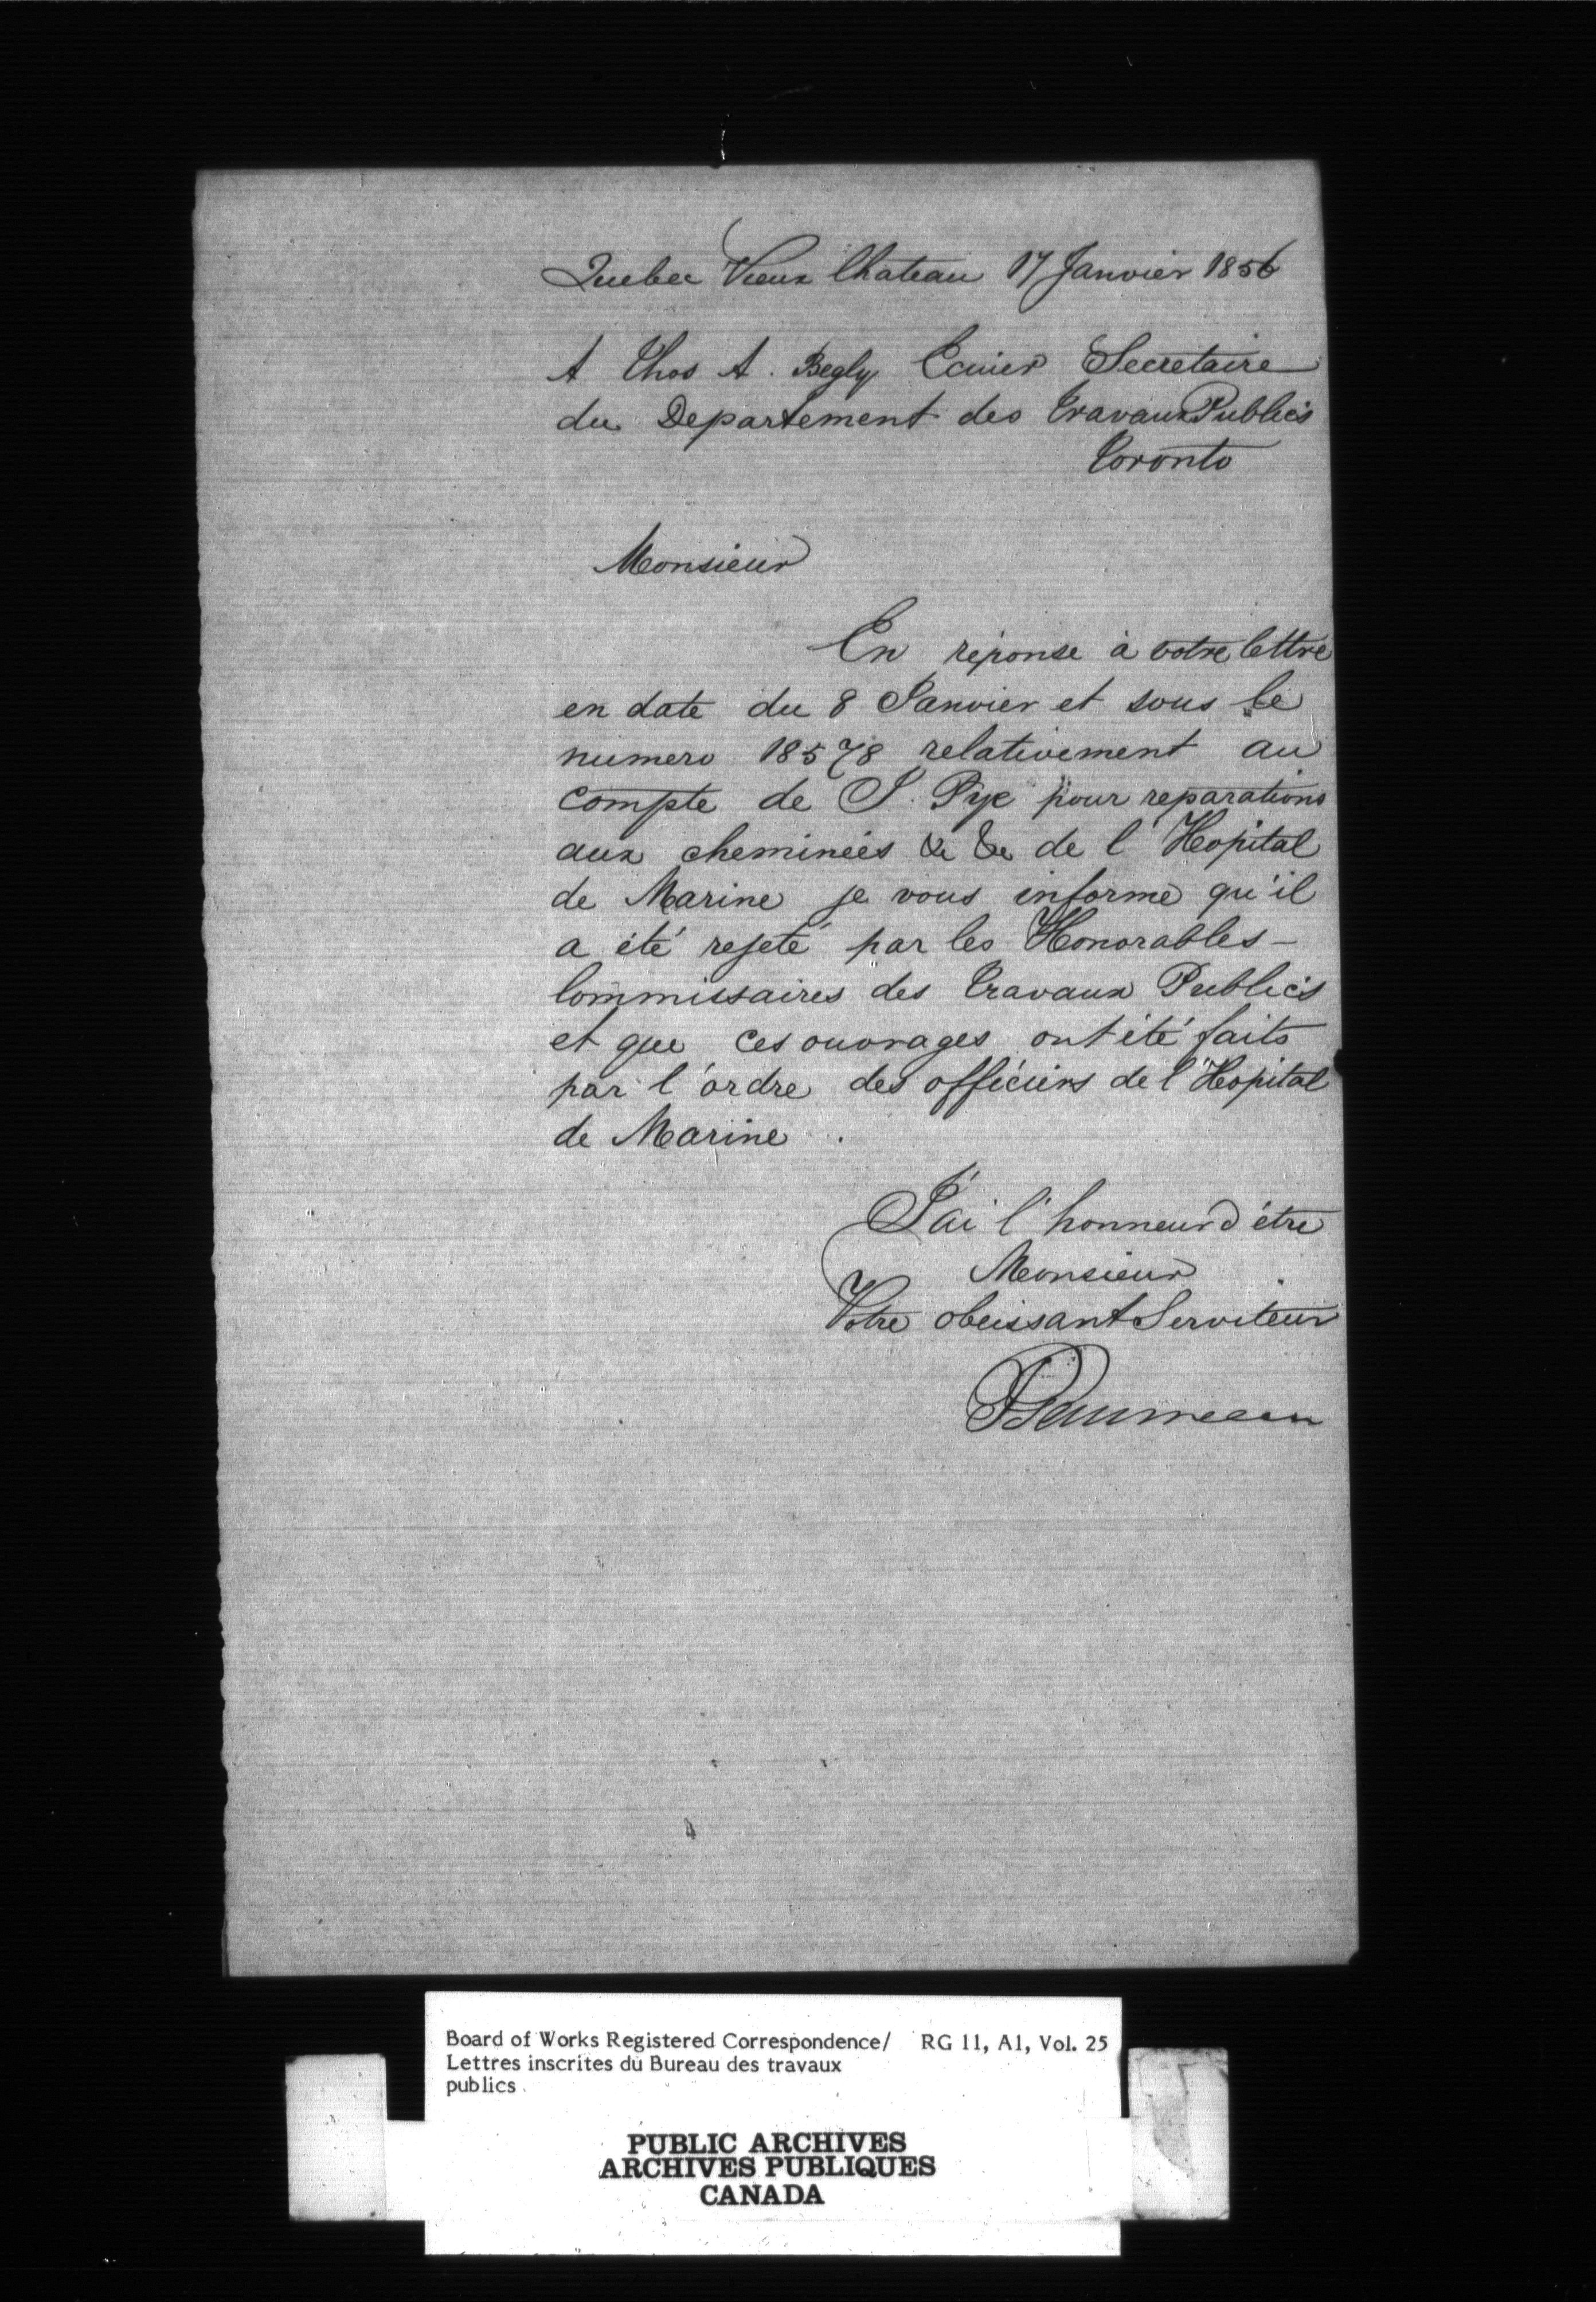 Quebec Vieux Chateau 17 Janvier 1856
A Thos A. Begly Ecuier Secretaire
du Departement des Travaux Publics
Toronto
Monsieur
En réponse à votre lettre
en date du 8 Janvier et sous le
numero 18578 relativement au
compte de J. Pye pour reparations
aux cheminées &c &c de l'Hopital
de Marine je vous informe qu'il
a été rejeté par les Honorables -
Commissaires des Travaux Publics
et que ces ouvrages ont été faits
par l'ordre des officiers de l'Hopital
de Marine .
J'ai l'honneur d'étre
Monsieur
Votre obeissant Serviteur
Board of Works Registered Correspondence/ RG 11, A1, Vol. 25
Lettres inscrites du Bureau des travaux
publics
PUBLIC ARCHIVES
ARCHIVES PUBLIQUES
CANADA